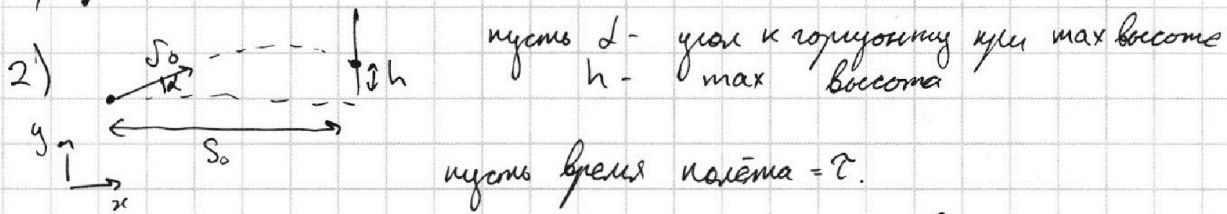 2)
V₀
α
h
S₀
y
x
пусть α - угол к горизонту при max высоте
h - max высота
пусть время полёта = τ.